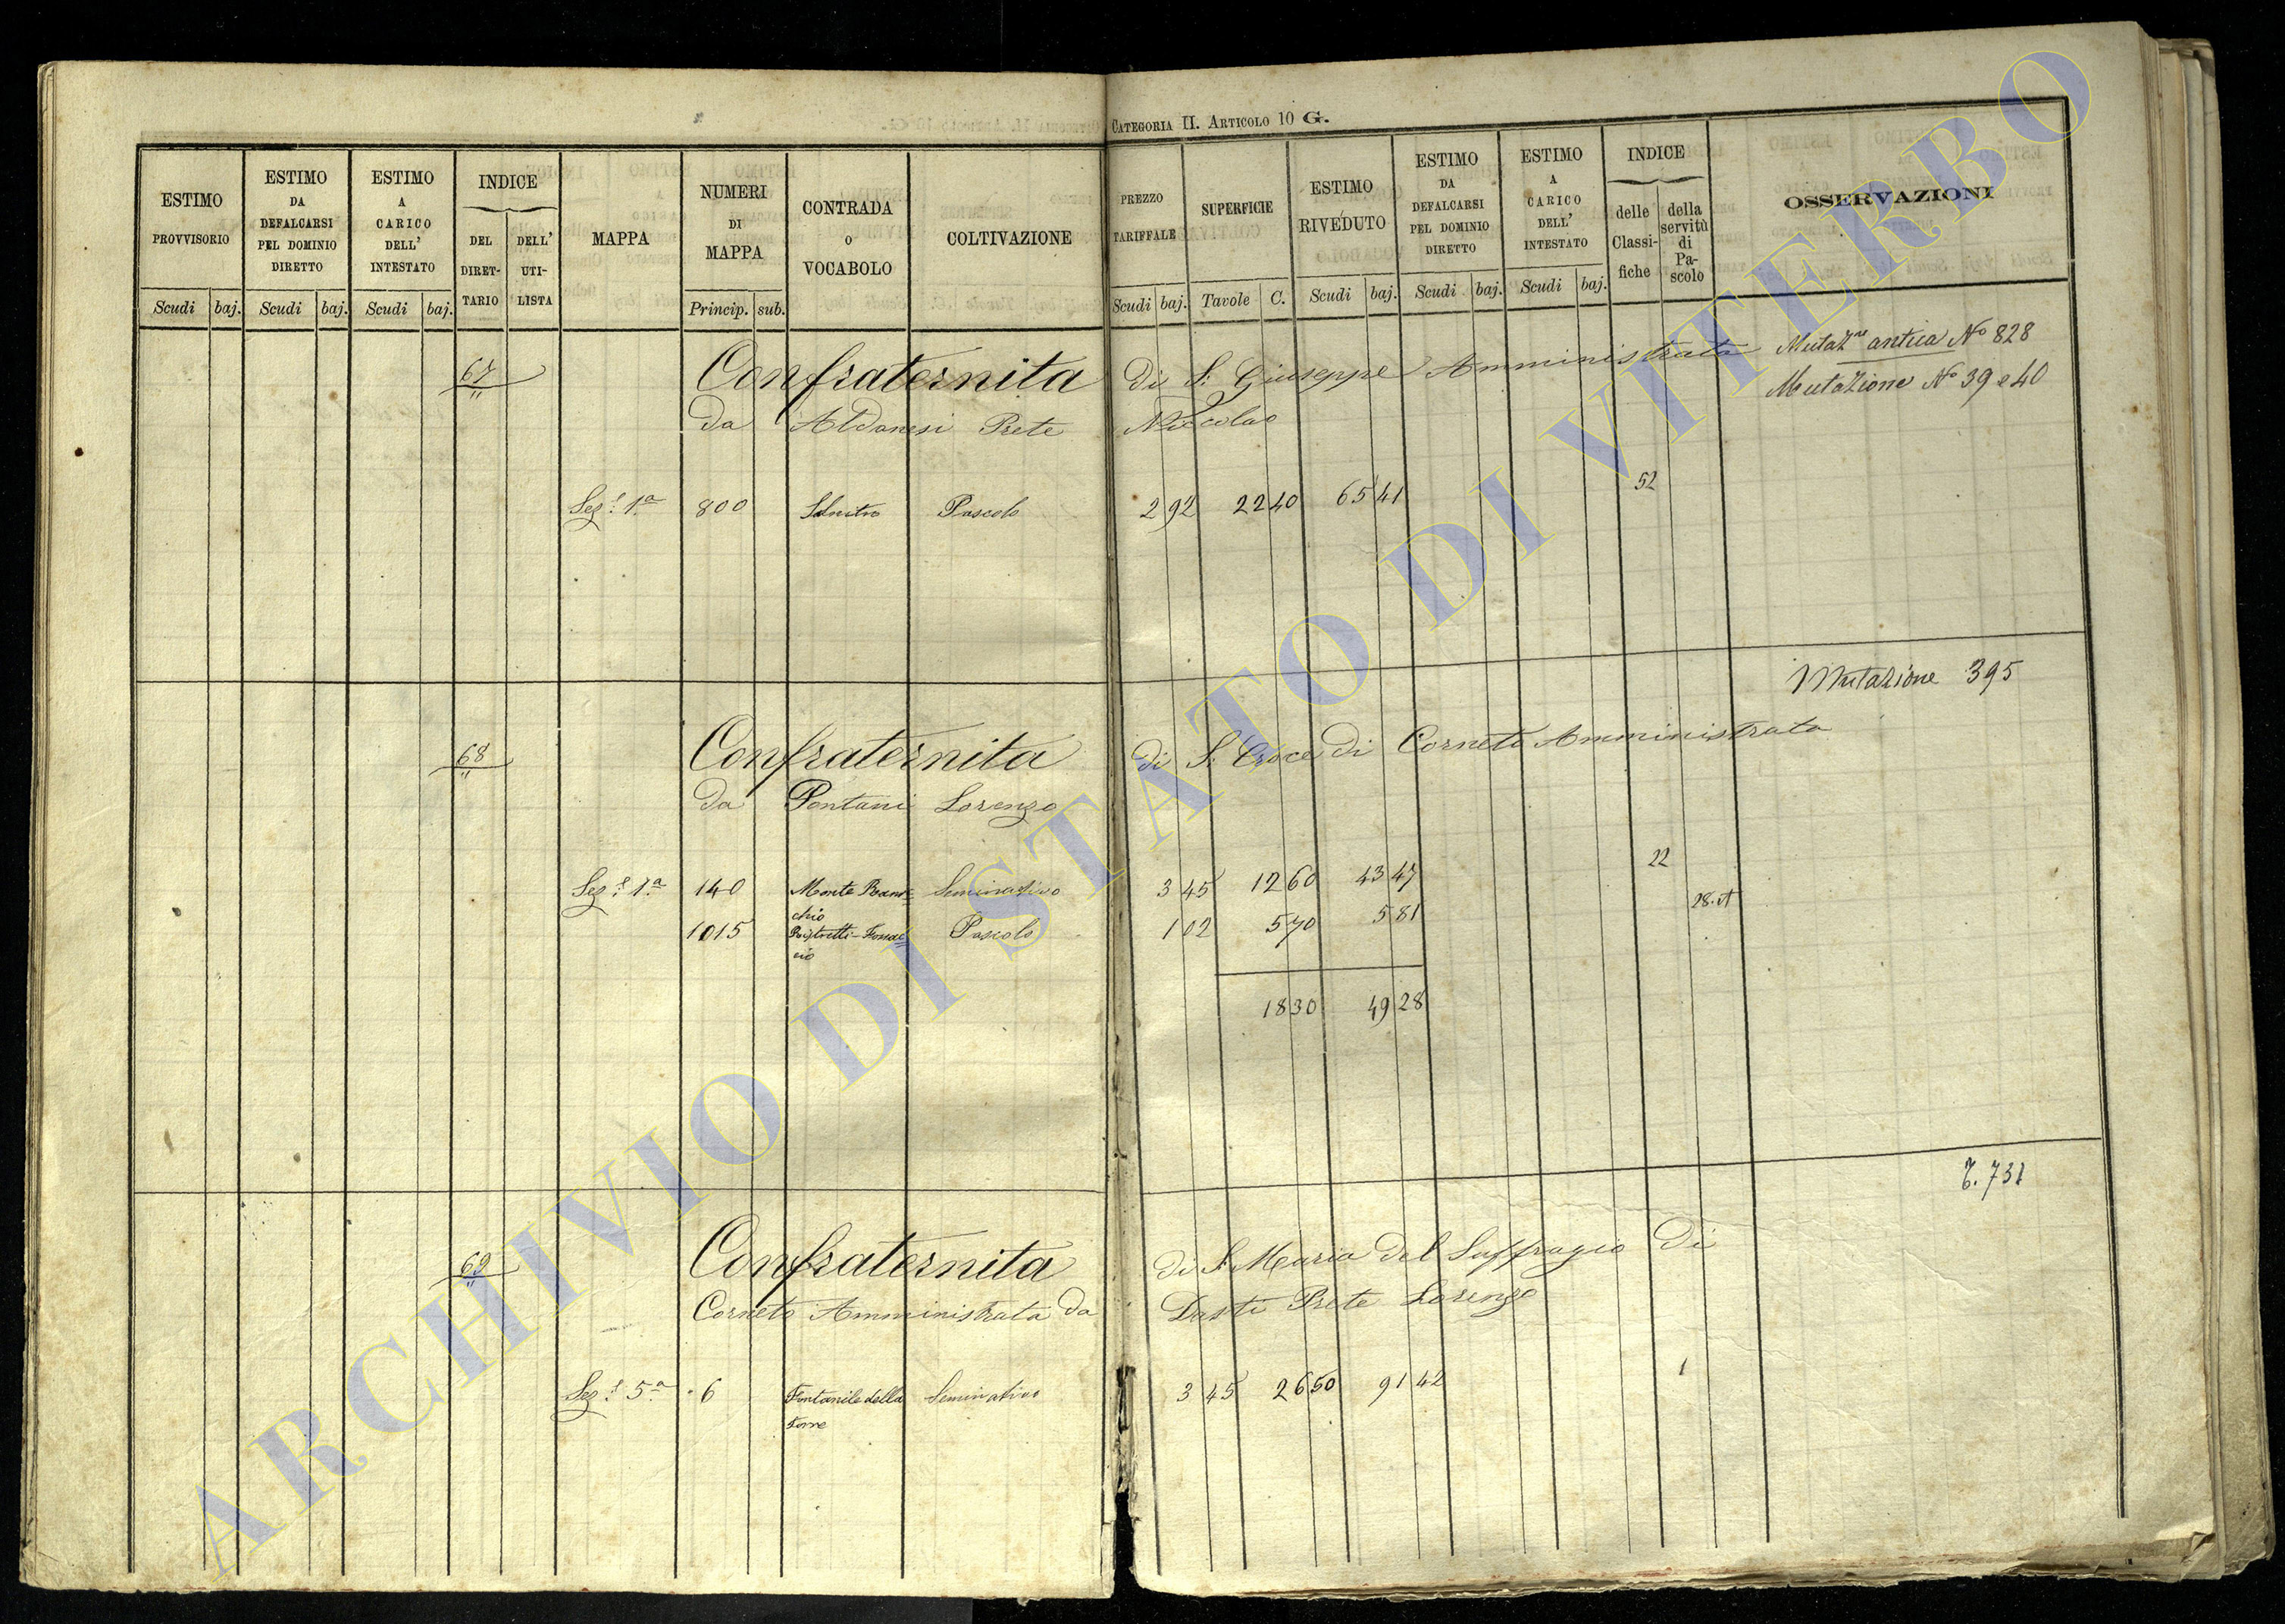 CATEGORIA II. ARTICOLO 10 G.
ESTIMO PROVVISORIO Scudi baj.
ESTIMO DA DEFALCARSI PEL DOMINIO DIRETTO Scudi baj.
ESTIMO A CARICO DELL' INTESTATO Scudi baj.
INDICE DEL DIRET-TARIO DELL' UTI-LISTA
MAPPA
NUMERI DI MAPPA Princip. sub.
CONTRADA O VOCABOLO
COLTIVAZIONE
PREZZO TARIFFALE Scudi baj.
SUPERFICIE Tavole C.
ESTIMO RIVEDUTO Scudi baj.
ESTIMO DA DEFALCARSI PEL DOMINIO DIRETTO Scudi baj.
ESTIMO A CARICO DELL' INTESTATO Scudi baj.
INDICE delle Classi-fiche della servitù di Pa-scolo
OSSERVAZIONI
67 Confraternita di S. Giuseppe Amministrata Mutazne antica No 828
da Aldanesi Prete Niccolao Mutazione No 39 e 40
Sez.e 1.a 800 Pascolo 2 92 22 40 65 41 52
Mutazione 395
68 Confraternita di S. Croce di Corneto Amministrata
da Pontani Lorenzo
Sez.e 1.a 140 Monte Seminativo 3 45 12 60 43 47 22
chio
1015 Ristretti - Pascolo 1 02 5 70 5 81 28. A
cio
18 30 49 28
T. 731
69 Confraternita di S. Maria del Suffragio di
Corneto Amministrata da Dasti Prete Lorenzo
Sez.e 5.a 6 Fontanile della Seminativo 3 45 26 50 91 42 1
torre
ARCHIVIO DI STATO DI VITERBO